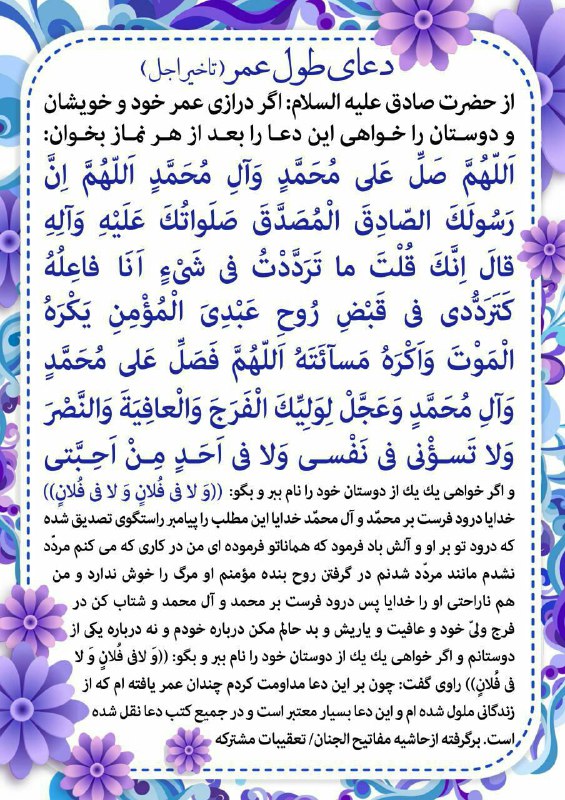 دعای طول عمر (تاخیر اجل)
از حضرت صادق علیه السلام: اگر درازی عمر خود و خویشان
و دوستان را خواهی این دعا را بعد از هر نماز بخوان:
اَللّهُمَّ صَلِّ عَلی مُحَمَّدٍ وَآلِ مُحَمَّدٍ اَللّهُمَّ اِنَّ
رَسُولَكَ الصّادِقَ الْمُصَدَّقَ صَلَواتُكَ عَلَیْهِ وَآلِهِ
قالَ اِنَّكَ قُلْتَ ما تَرَدَّدْتُ فی شَیْءٍ اَنَا فاعِلُهُ
كَتَرَدُّدی فی قَبْضِ رُوحِ عَبْدِیَ الْمُؤْمِنِ یَكْرَهُ
الْمَوْتَ وَاَكْرَهُ مَسآئَتَهُ اَللّهُمَّ فَصَلِّ عَلی مُحَمَّدٍ
وَآلِ مُحَمَّدٍ وَعَجَّلْ لِوَلِیِّكَ الْفَرَجَ وَالْعافِیَةَ وَالنَّصْرَ
وَلا تَسؤْنی فی نَفْسی وَلا فی اَحَدٍ مِنْ اَحِبَّتی
و اگر خواهی یك یك از دوستان خود را نام ببر و بگو: ((وَ لا فی فُلانٍ وَ لا فی فُلانٍ))
خدایا درود فرست بر محمّد و آل محمّد خدایا این مطلب را پیامبر راستگوی تصدیق شده
که درود تو بر او و آلش باد فرمود که هماناتو فرموده ای من در کاری که می کنم مردّد
نشدم مانند مردّد شدنم در گرفتن روح بنده مؤمنم او مرگ را خوش ندارد و من
هم ناراحتی او را خدایا پس درود فرست بر محمد و آل محمد و شتاب کن در
فرج ولیّ خود و عافیت و یاریش و بد حالم مکن درباره خودم و نه درباره یکی از
دوستانم و اگر خواهی یك یك از دوستان خود را نام ببر و بگو: ((وَ لافی فُلانٍ وَ لا
فی فُلانٍ)) راوی گفت: چون بر این دعا مداومت کردم چندان عمر یافته ام که از
زندگانی ملول شده ام و این دعا بسیار معتبر است و در جمیع کتب دعا نقل شده
است. برگرفته ازحاشیه مفاتیح الجنان/ تعقیبات مشترکه